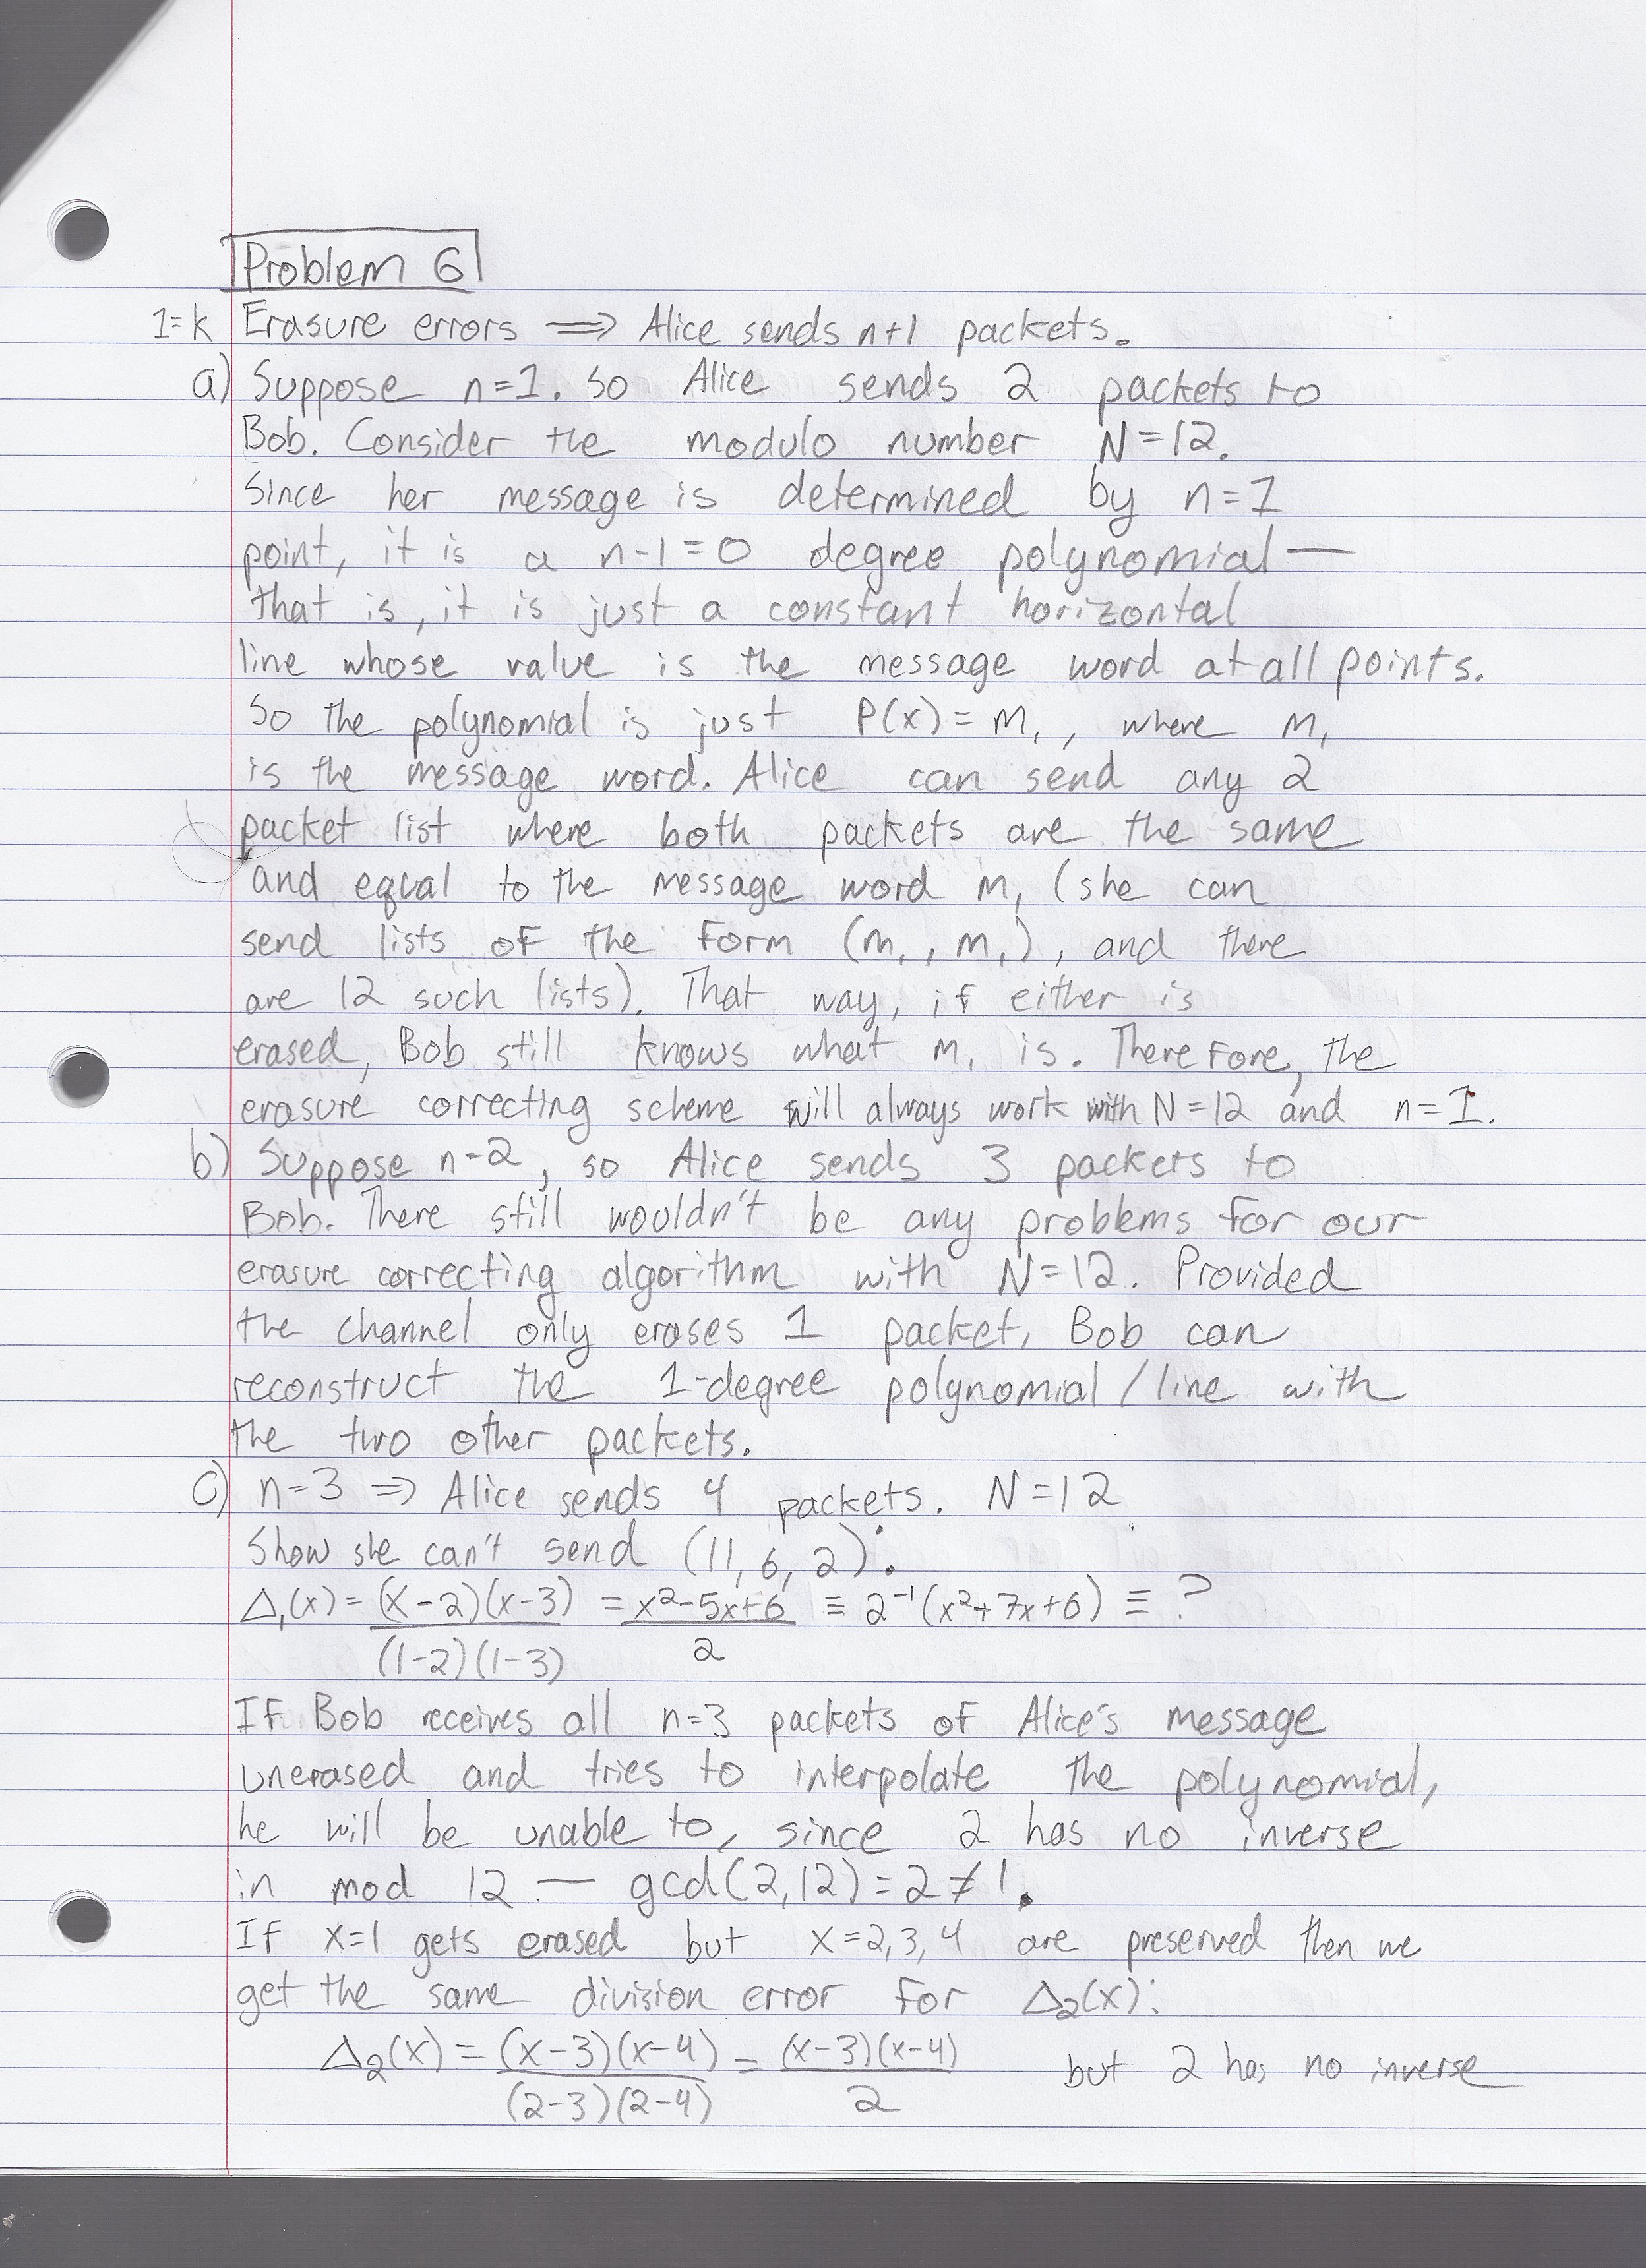 Problem 6
1=k Erasure errors ⟹ Alice sends n+1 packets.
a) Suppose n=1. So Alice sends 2 packets to
Bob. Consider the modulo number N=12.
Since her message is determined by n=1
point, it is a n-1=0 degree polynomial—
that is, it is just a constant horizontal
line whose value is the message word at all points.
So the polynomial is just P(x)=m₁, where m₁
is the message word. Alice can send any 2
packet list where both packets are the same
and equal to the message word m₁ (she can
send lists of the form (m₁, m₁), and there
are 12 such lists). That way, if either is
erased, Bob still knows what m₁ is. Therefore, the
erasure correcting scheme will always work with N=12 and n=1.
b) Suppose n=2, so Alice sends 3 packets to
Bob. There still wouldn't be any problems for our
erasure correcting algorithm with N=12. Provided
the channel only erases 1 packet, Bob can
reconstruct the 1-degree polynomial/line with
the two other packets.
c) n=3 ⟹ Alice sends 4 packets. N=12
Show she can't send (11, 6, 2):
Δ₁(x) = (x-2)(x-3)/(1-2)(1-3) = x²-5x+6/2 ≡ 2⁻¹(x²+7x+6) ≡ ?
If Bob receives all n=3 packets of Alice's message
unerased and tries to interpolate the polynomial,
he will be unable to, since 2 has no inverse
in mod 12 — gcd(2,12)=2≠1.
If x=1 gets erased but x=2,3,4 are preserved then we
get the same division error for Δ₂(x):
Δ₂(x) = (x-3)(x-4)/(2-3)(2-4) = (x-3)(x-4)/2 but 2 has no inverse